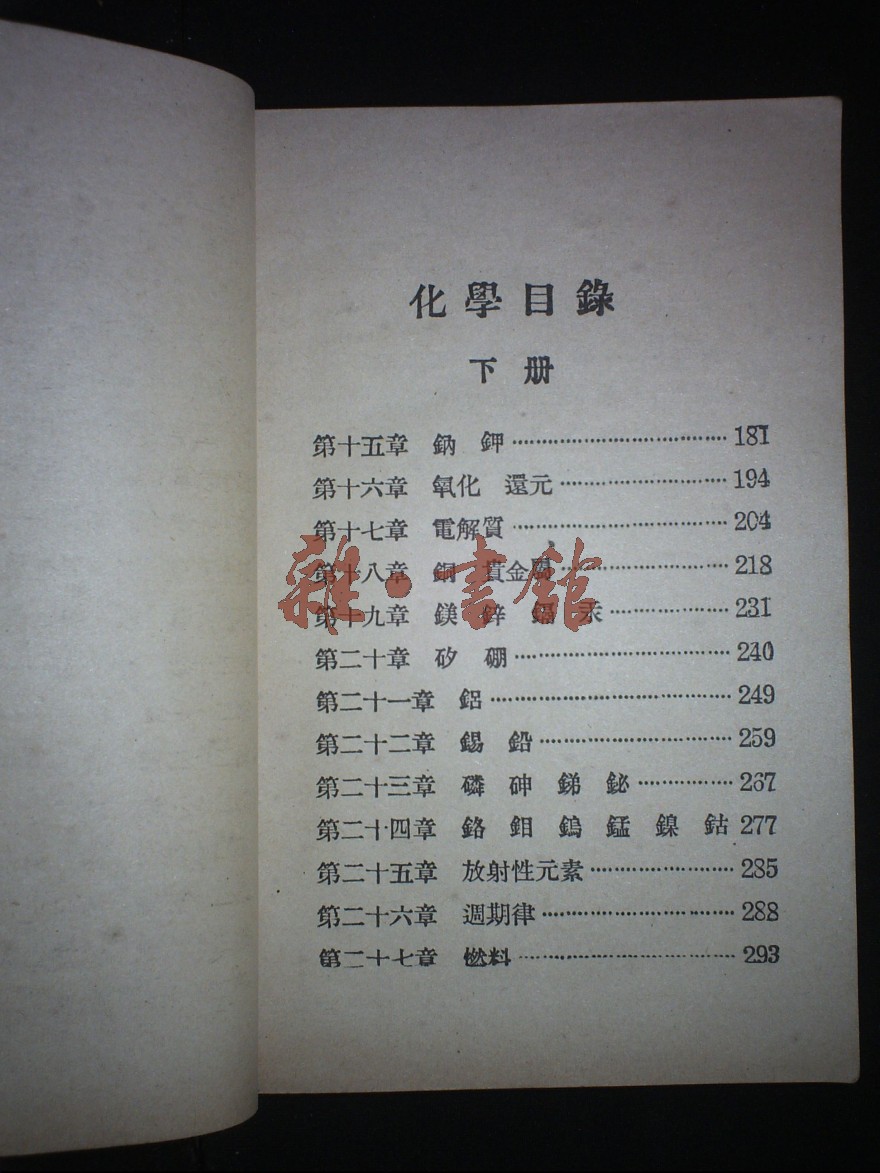 化學目錄
下册
第十五章 鈉 鉀 ⋯⋯⋯⋯⋯⋯⋯⋯⋯ 181
第十六章 氧化 還元 ⋯⋯⋯⋯⋯⋯⋯ 194
第十七章 電解質 ⋯⋯⋯⋯⋯⋯⋯⋯⋯ 204
第十八章 銅 貴金屬 ⋯⋯⋯⋯⋯⋯⋯ 218
第十九章 鎂 鋅 鎘 汞 ⋯⋯⋯⋯⋯ 231
第二十章 矽 硼 ⋯⋯⋯⋯⋯⋯⋯⋯⋯ 240
第二十一章 鋁 ⋯⋯⋯⋯⋯⋯⋯⋯⋯⋯ 249
第二十二章 錫 鉛 ⋯⋯⋯⋯⋯⋯⋯⋯ 259
第二十三章 磷 砷 銻 鉍 ⋯⋯⋯⋯ 267
第二十四章 鉻 鉬 鎢 錳 鎳 鈷 277
第二十五章 放射性元素 ⋯⋯⋯⋯⋯⋯ 285
第二十六章 週期律 ⋯⋯⋯⋯⋯⋯⋯⋯ 288
第二十七章 燃料 ⋯⋯⋯⋯⋯⋯⋯⋯⋯ 293
雜·書館